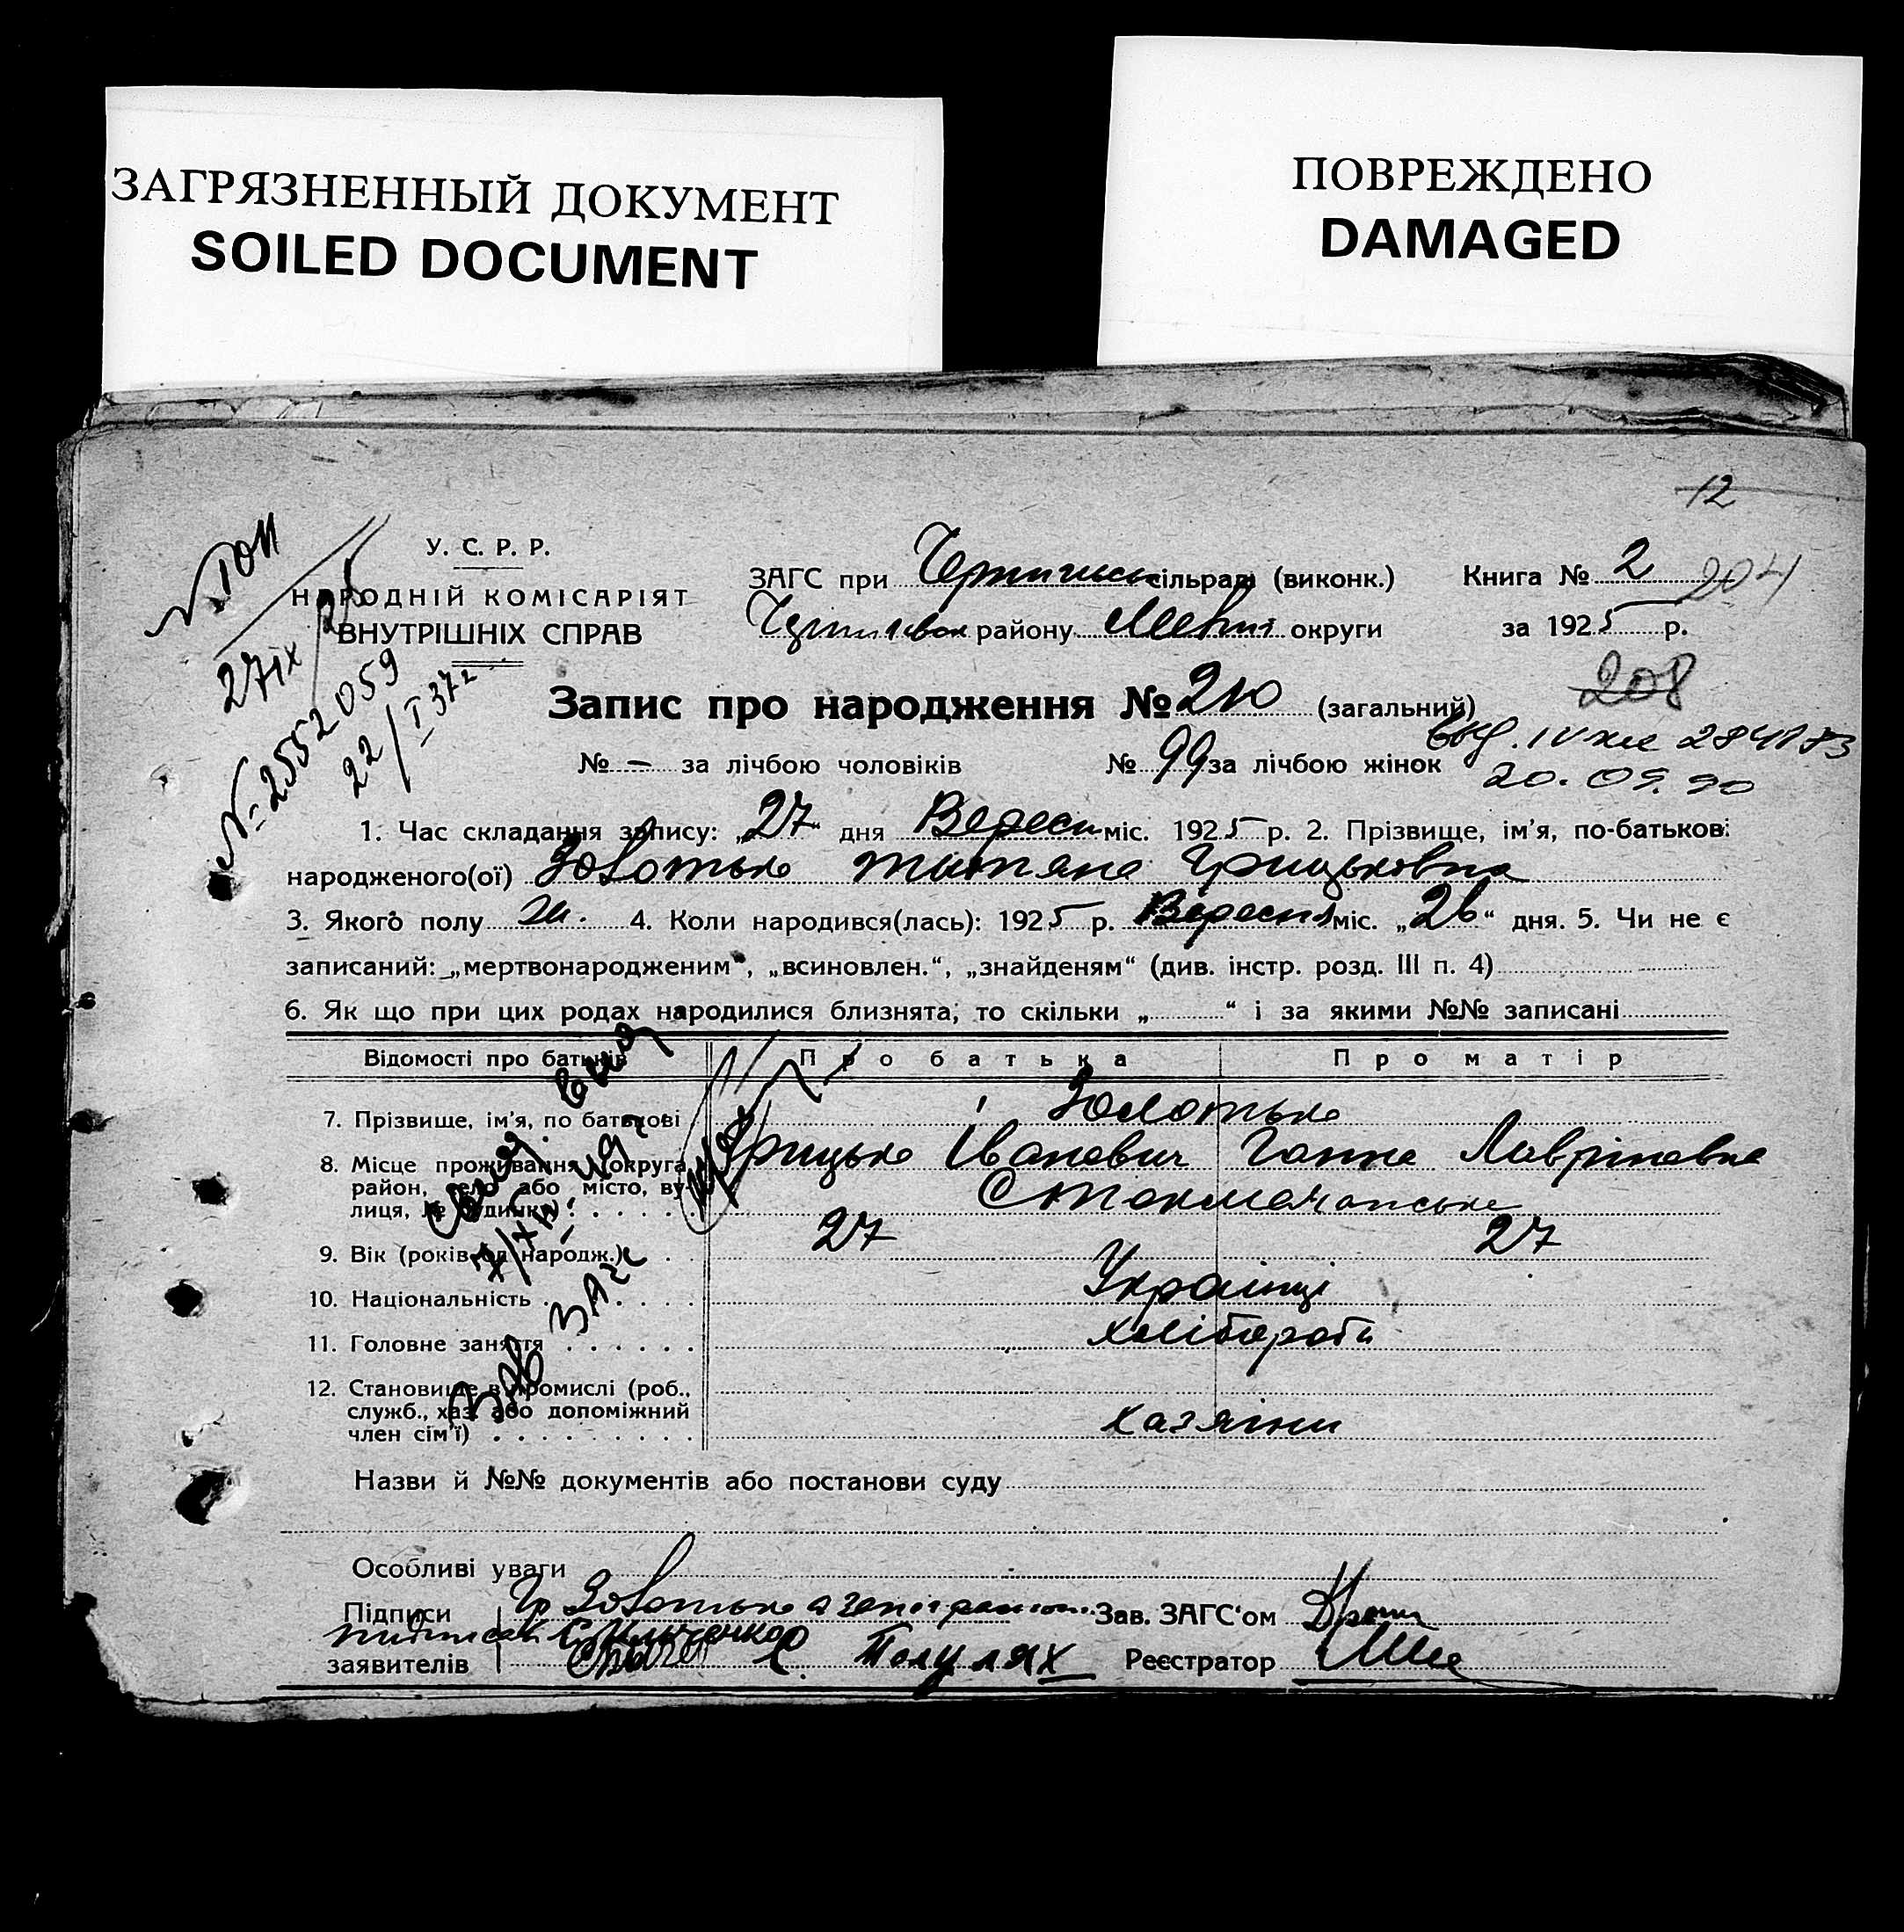 ЗАГРЯЗНЕННЫЙ ДОКУМЕНТ
SOILED DOCUMENT
ПОВРЕЖДЕНО
DAMAGED
12
У. С. Р. Р.
НАРОДНІЙ КОМІСАРІЯТ
ВНУТРІШНІХ СПРАВ
27/IX
№ 2552059
22/I 37г
ЗАГС при сільраді (виконк.)
району округи
Книга № 2 204
за 1925 р.
208
Запис про народження № 210 (загальний)
№ – за лічбою чоловіків № 99 за лічбою жінок
20.09.90
1. Час складання запису: „27" дня Вересн міс. 1925 р. 2. Прізвище, ім'я, по-батькові
народженого(ої) Золотько Титяна Грицьковна
3. Якого полу ж. 4. Коли народився(лась): 1925 р. Вересня міс. „26" дня. 5. Чи не є
записаний: „мертвонародженим", „всиновлен.", „знайденям" (див. інстр. розд. III п. 4)
6. Як що при цих родах народилися близнята, то скільки „ " і за якими №№ записані
Відомості про батьків Про батька Про матір
7. Прізвище, ім'я, по батькові Золотько
Грицько Іванович Ганна Лавріновна
8. Місце проживання (округа, район, село або місто, вулиця, № будинку)
9. Вік (років од народж.) 27 27
10. Національність Українці
11. Головне заняття хлібороби
12. Становище в промислі (роб., служб., хаз. або допоміжний член сім'ї) хазяіни
Назви й №№ документів або постанови суду
Особливі уваги
Підписи Гр Золотько а
заявителів
Полулях
Зав. ЗАГС'ом
Реєстратор